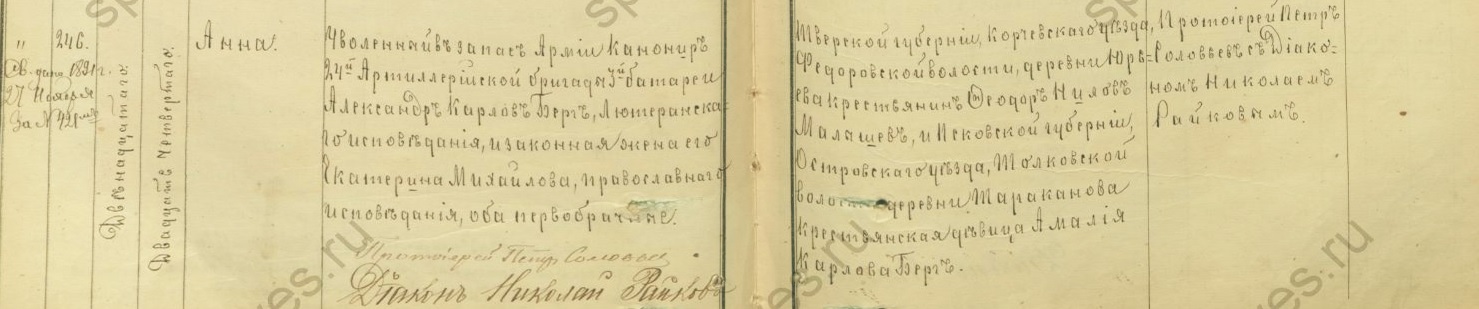 „ 246.
Св. дано 1891 г.
27 Ноября
За № 421мъ
Двѣнадцатаго.
Двадцать четвертаго.
Анна.
Уволенный въ запасъ Арміи Канониръ
24й Артиллерійской бригады 3й батареи
Александръ Карловъ Бергъ, Лютеранска-
го исповѣданія, и законная жена его
Екатерина Михайлова, православнаго
исповѣданія, оба первобрачные.
Протоіерей Петръ Соловьевъ
Діаконъ Николай Райковъ
Тверской губерніи, Корчевскаго уѣзда,
Федоровской волости, деревни Юрь-
ева крестьянинъ Ѳеодоръ Ниловъ
Малышевъ, и Псковской губерніи,
Островскаго уѣзда, Толковской
волости деревни Тараканова
крестьянская дѣвица Амалія
Карлова Бергъ.
Протоіерей Петръ
Соловьевъ съ Діако-
номъ Николаемъ
Райковымъ.